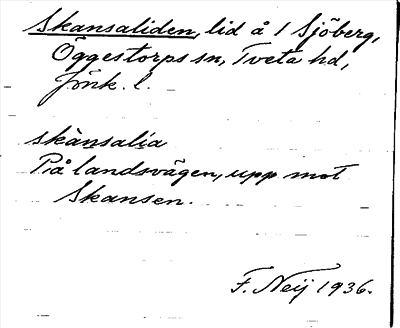 Skansaliden, lid å 1 Sjöberg,
Öggestorps sn, Tveta hd,
Jönk. l.
skànsalía
På landsvägen, upp mot
Skansen.
F. Neij 1936.